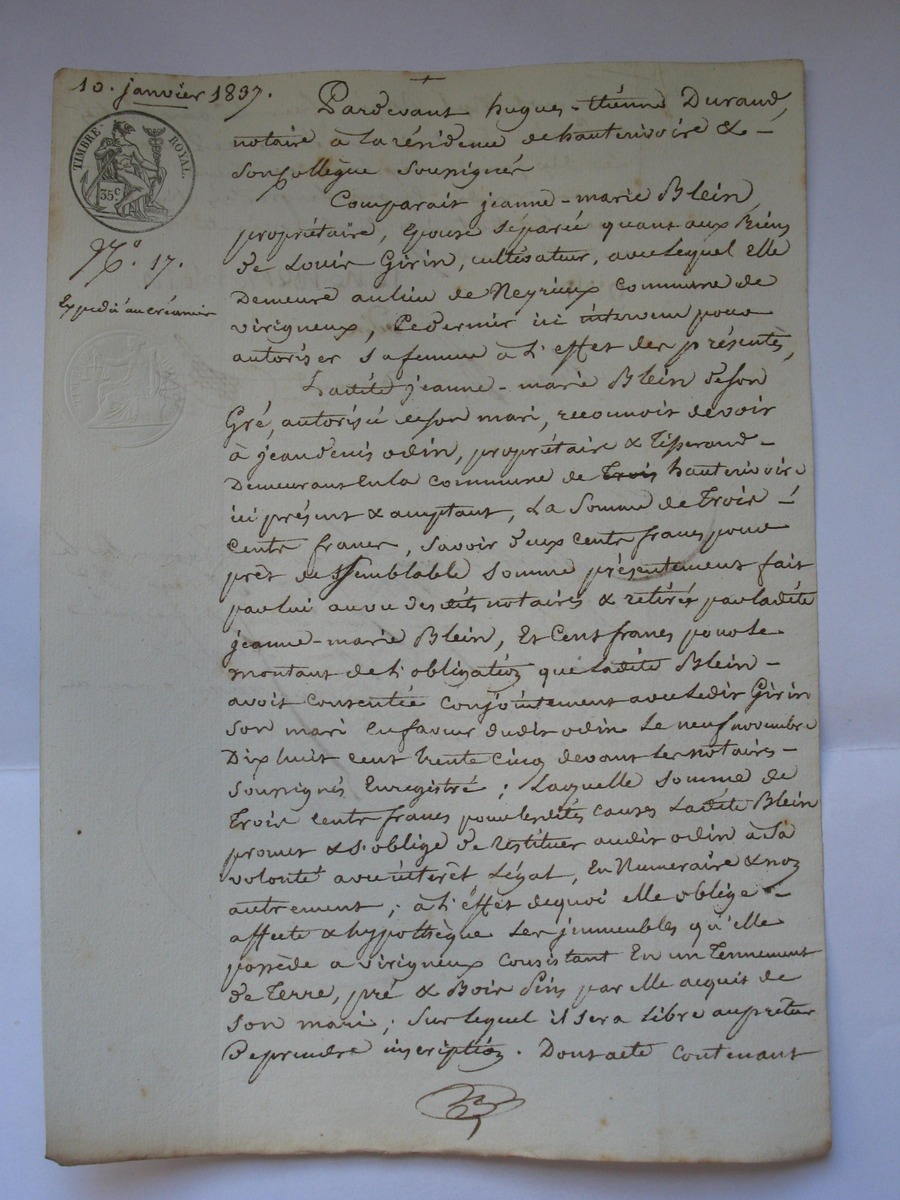 10. janvier 1837.
TIMBRE ROYAL.
35 c
N.o 17.
Expédié au créancier
Pardevant hugues-étienne Durand,
notaire à la résidence de hauterivoire &
son collègue soussignés
Comparait jeanne-marie Blein,
propriétaire, épouse séparée quant aux Biens
de Louis Girin, cultivateur, avec lequel elle
Demeure au lieu de Neyrieux commune de
virigneux, Ce dernier ici intervenu pour
autoriser sa femme à l'effet des présentes,
Ladite jeanne-marie Blein de son
Gré, autorisée de son mari, reconnoit devoir
à jean denis odin, propriétaire & Tisserand
Demeurant En la commune de Trois hauterivoire
ici présent & acceptant, La Somme de Trois
Cents francs, Savoir deux cents francs pour
prêt de Semblable Somme présentement fait
par lui au vu desdits notaires & retirés par ladite
jeanne-marie Blein, Et Cent francs pour le
montant de l'obligation que ladite Blein
avoit consentie conjointement avec ledit Girin
son mari en faveur dudit odin le neuf novembre
Dix huit cent trente cinq devant les notaires
soussignés Enregistré ; Laquelle somme de
Trois cents francs pour lesdites causes Ladite Blein
promet & s'oblige de restituer audit odin à sa
volonté avec intérêt Légal, En Numeraire & non
autrement ; à l'effet de quoi elle oblige
affecte & hypothèque les immeubles qu'elle
possède a virigneux consistant En un Tennement
de Terre, pré & Bois Pins par elle acquis de
son mari ; sur lequel il sera libre au prêteur
de prendre inscription. Dont acte contenant